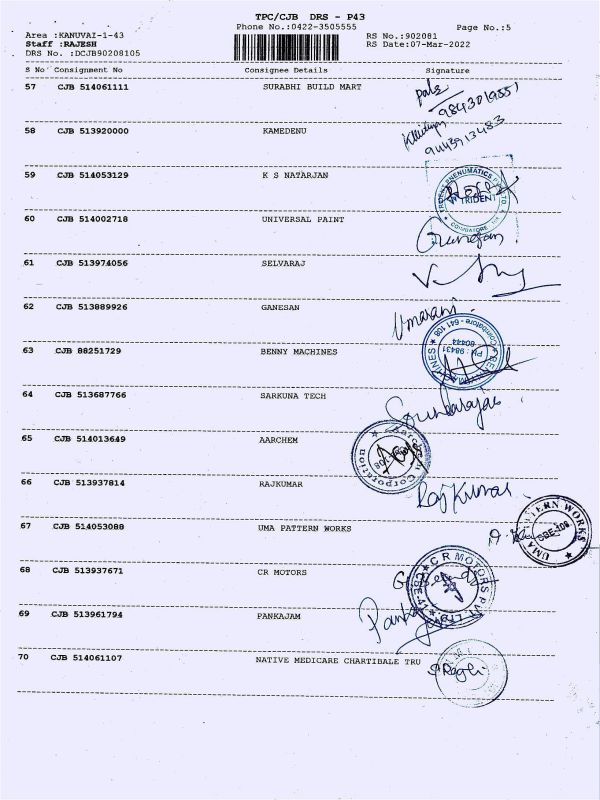 TPC/CJB DRS - P43
Phone No.:0422-3505555 Page No.:5
Area :KANUVAI-1-43 RS No.:902081
Staff :RAJESH RS Date:07-Mar-2022
DRS No. :DCJB90208105
S No Consignment No Consignee Details Signature
57 CJB 514061111 SURABHI BUILD MART
9843019551
58 CJB 513920000 KAMEDENU
9443913483
59 CJB 514053129 K S NATARJAN
TRIDENT PNEUMATICS
TRIDENT
COIMBATORE
60 CJB 514002718 UNIVERSAL PAINT
61 CJB 513974056 SELVARAJ
62 CJB 513889926 GANESAN
Umarani
63 CJB 88251729 BENNY MACHINES
Coimbatore - 641 108
PH: 98431
80444
64 CJB 513687766 SARKUNA TECH
Soundarajan
65 CJB 514013649 AARCHEM
Aarchem Corporation
66 CJB 513937814 RAJKUMAR
RajKumar
67 CJB 514053088 UMA PATTERN WORKS
UMA PATTERN WORKS
CBE-108
68 CJB 513937671 CR MOTORS
C R MOTORS PVT. LTD.
CBE-41
69 CJB 513961794 PANKAJAM
70 CJB 514061107 NATIVE MEDICARE CHARTIBALE TRU